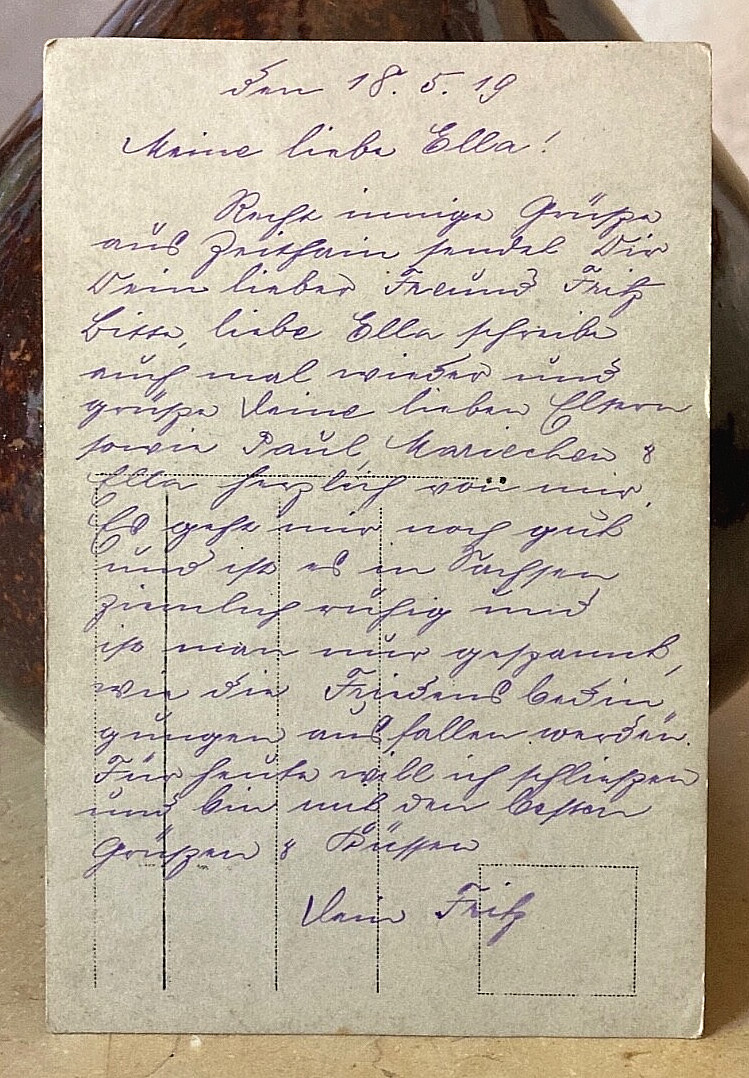 den 18. 5. 19
Meine liebe Ella!
Recht innige Grüße
aus Zeithain sendet Dir
Dein lieber Freund Fritz
Bitte, liebe Ella schreibe
auch mal wieder und
grüße Deine lieben Eltern
sowie Paul, Mariechen &
Ella herzlich von mir.
Es geht mir noch gut
und ist es in Sachsen
ziemlich ruhig und
ist man nur gespannt,
wie die Friedens bedin
gungen aus fallen werden.
Für heute will ich schließen
und bin mit den besten
Grüßen & Küssen
Dein Fritz